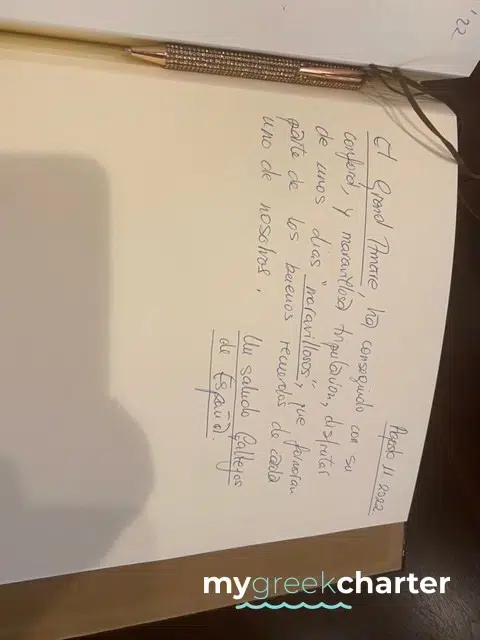 '22
Agosto 11 2022
El Grand Amore, ha conseguido con su
conford, y maravillosa tripulación, disfrutar
de unos dias "maravillosos", que formaran
parte de los buenos recuerdos de cada
uno de nosotros.
Un saludo
de España.
mygreekcharter